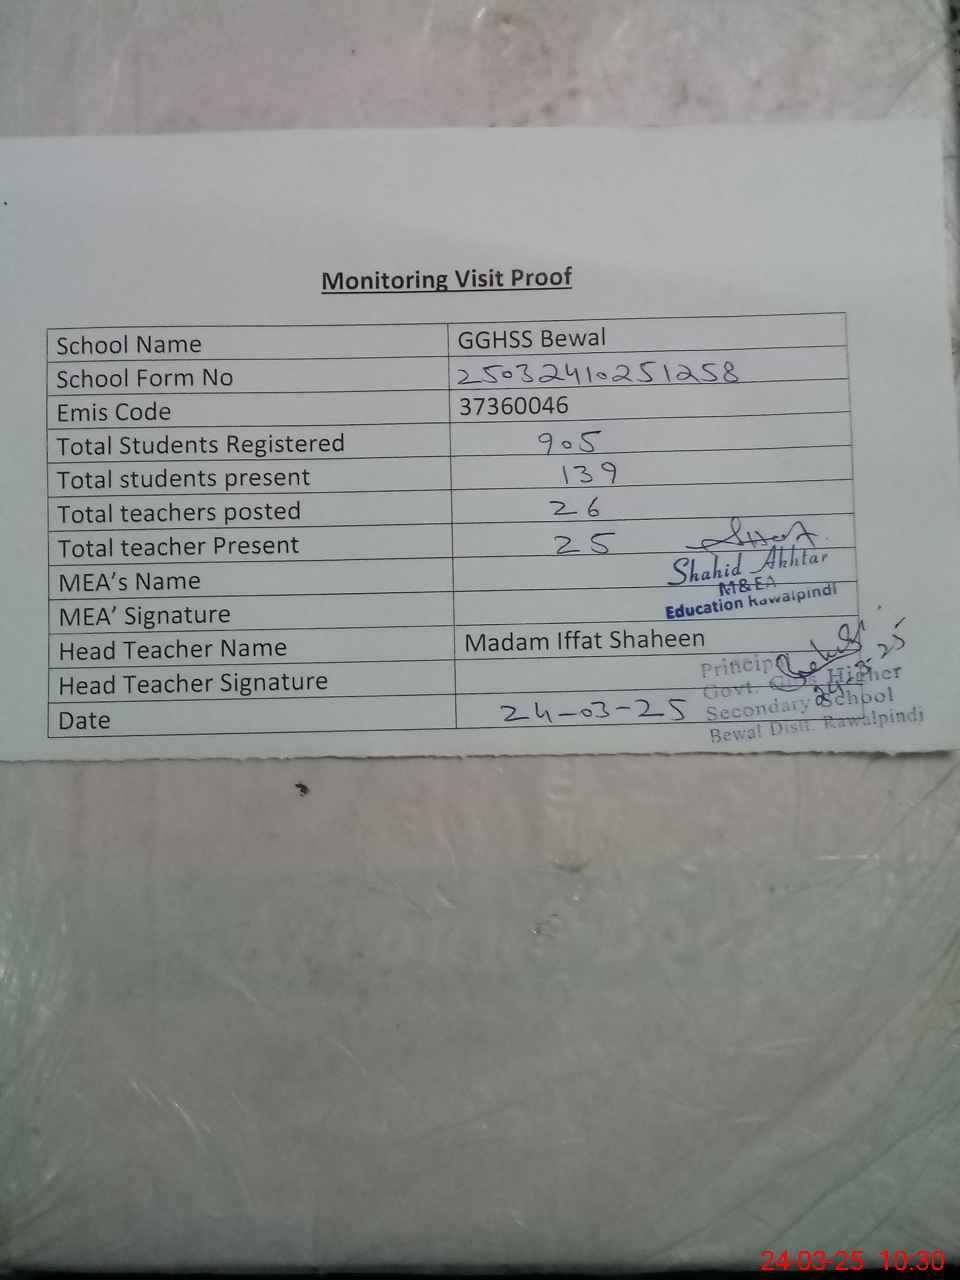 Monitoring Visit Proof
School Name GGHSS Bewal
School Form No 25032410251258
Emis Code 37360046
Total Students Registered 905
Total students present 139
Total teachers posted 26
Total teacher Present 25
MEA's Name Shahid Akhtar
M&EA
MEA' Signature Education Rawalpindi
Head Teacher Name Madam Iffat Shaheen
Head Teacher Signature
Date 24-03-25
Principal
Govt. Girls Higher
Secondary School
Bewal Distt. Rawalpindi
24-3-25
24-03-25 10:30